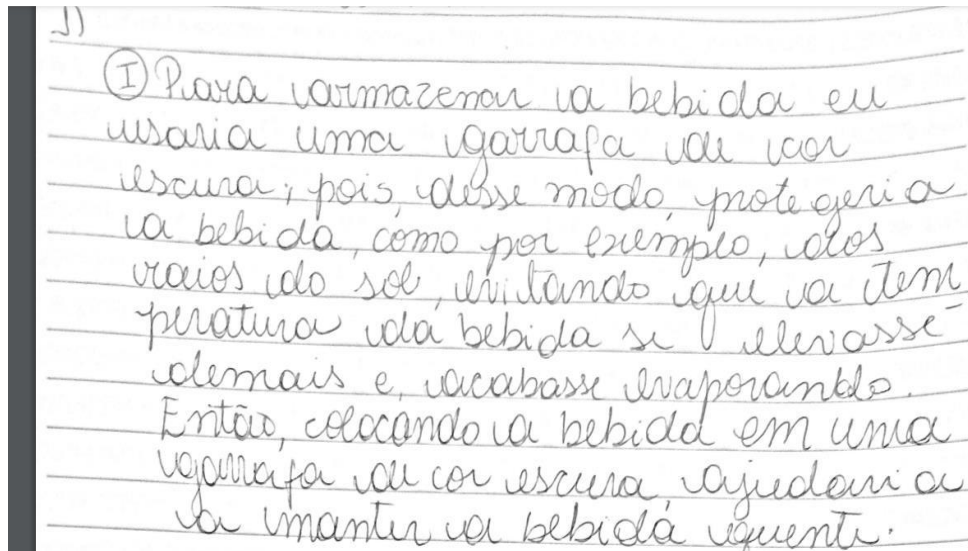 1)
I Para armazenar a bebida eu
usaria uma garrafa de cor
escura, pois, desse modo, protegeria
a bebida, como por exemplo, dos
raios do sol, evitando que a tem
peratura da bebida se elevasse
demais e, acabasse evaporando.
Então, colocando a bebida em uma
garrafa de cor escura, ajudaria
a manter a bebida quente.